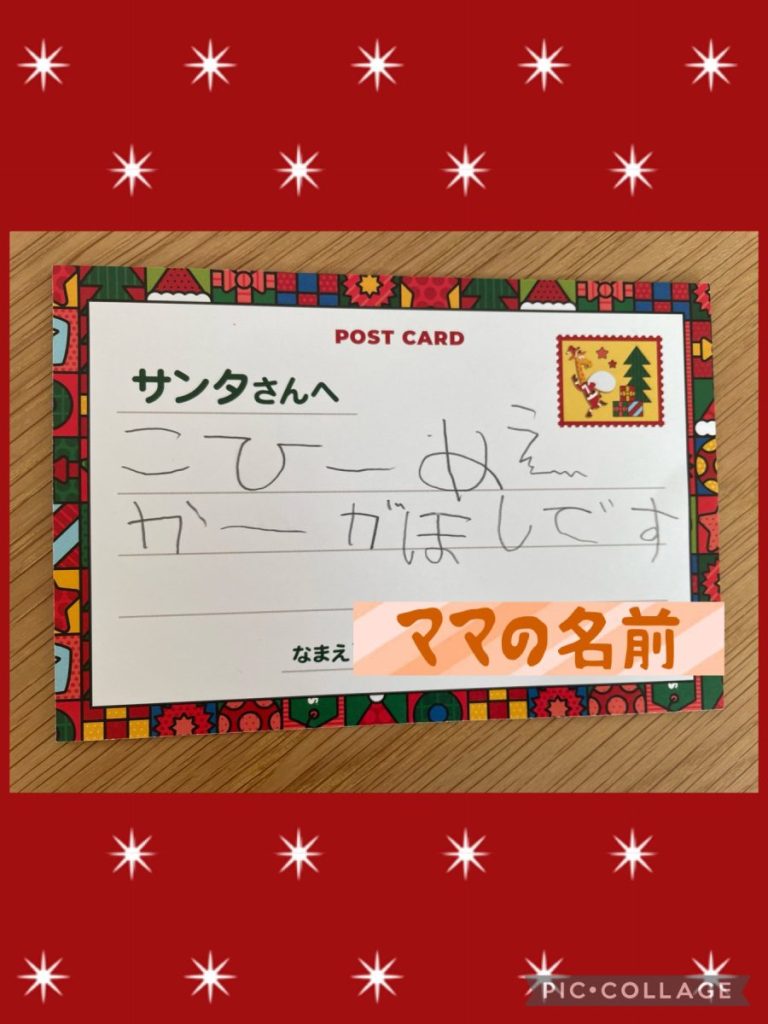 POST CARD
サンタさんへ
こひーめえ
かーがほしです
なまえ
ママの名前
PIC•COLLAGE